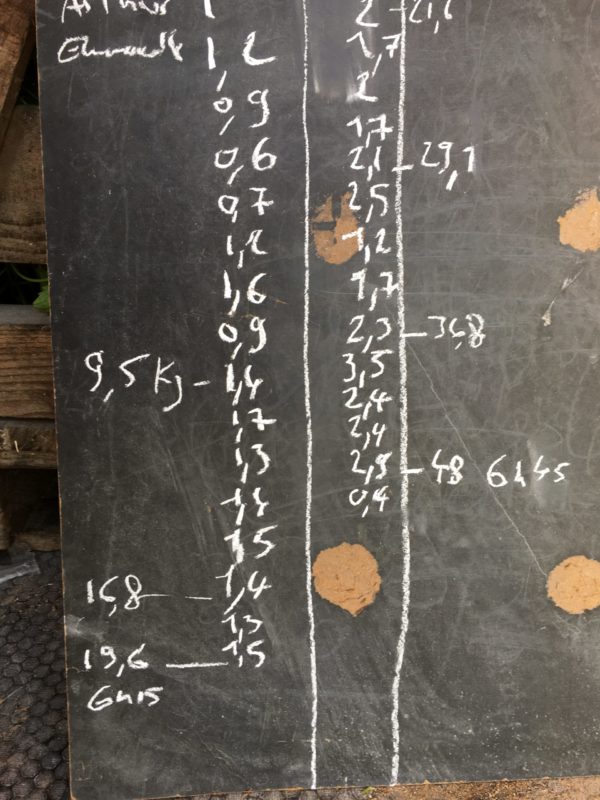 1 2 - 21,6
1,2 1,7
0,9 2
1,7
0,6 2,1 - 29,1
0,7 2,5
1,2 1,2
1,6 1,7
0,9 2,3 - 36,8
9,5 Kg - 1,4 3,5
2,4
1,7 2,4
1,3 2,9 - 48 6h45
1,4 0,4
1,5
16,8 - 1,4
1,3
19,6 - 1,5
6h15